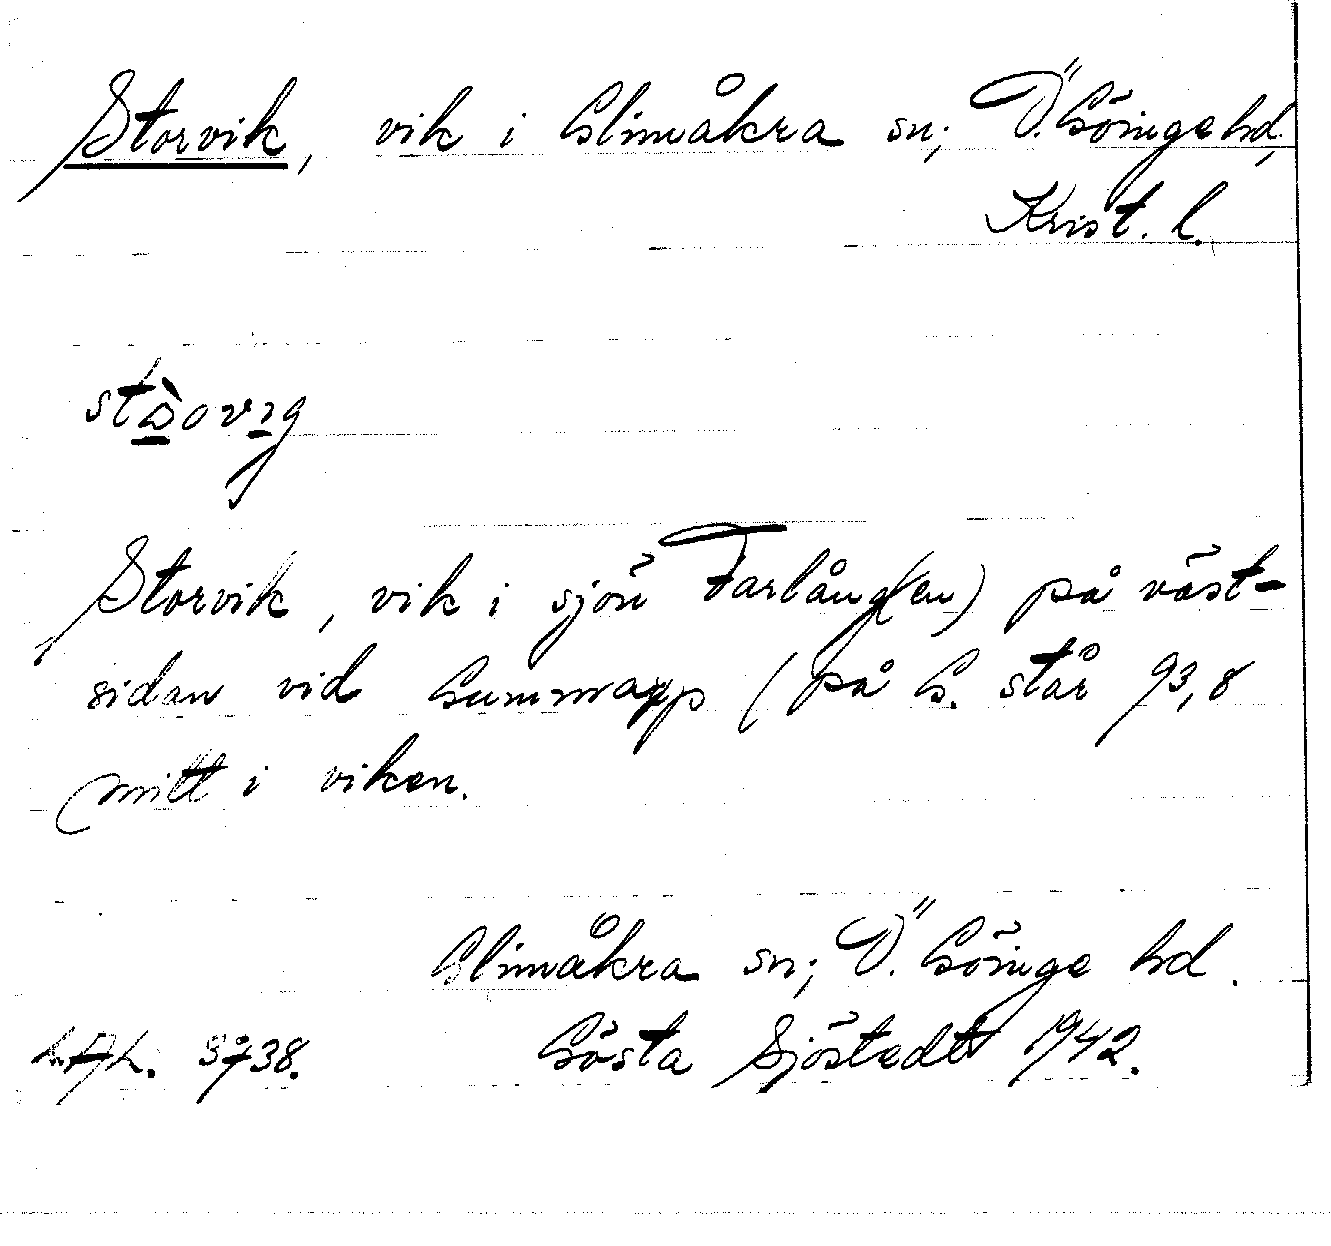 Storvik, vik i Glimåkra sn; Ö. Göinge hd,
Krist. l.
Storvik, vik i sjön Farlång(en) på väst-
sidan vid Gummapp (på G. står 93,8
mitt i viken.
Glimåkra sn; Ö. Göinge hd.
3738. Gösta Sjöstedt 1942.